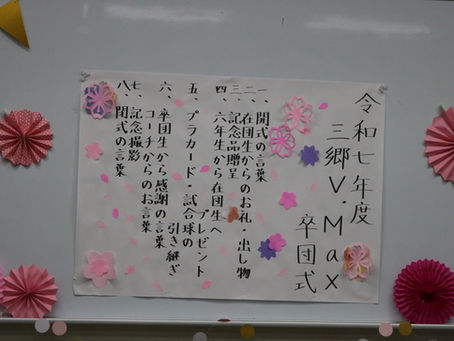 令和七年度
三郷V・Max
卒団式
一、開式の言葉
二、在団生からのお礼・出し物
三、記念品贈呈
四、六年生から在団生へ
プレゼント
五、プラカード・試合球の
引き継ぎ
六、卒団生から感謝の言葉
コーチからのお言葉
七、記念撮影
八、閉式の言葉